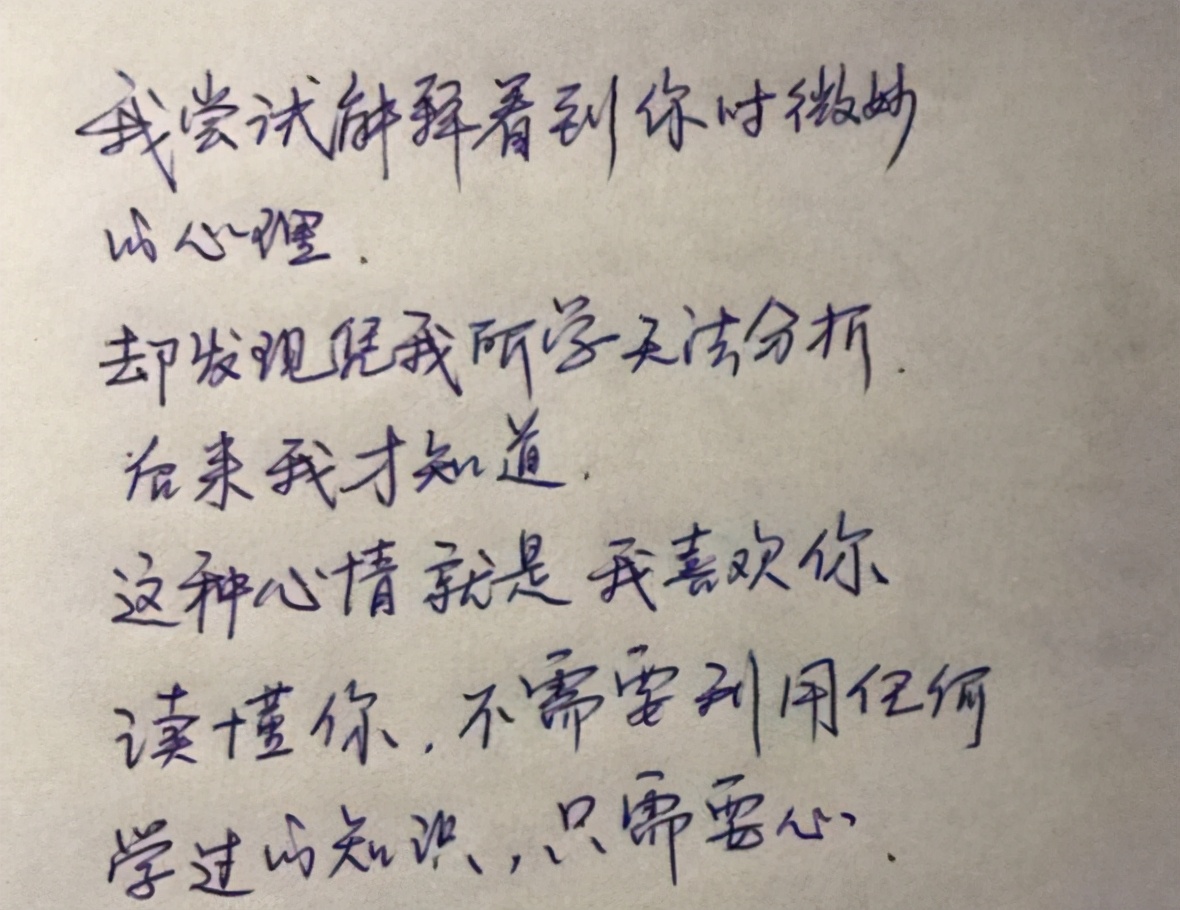 我尝试解释看到你时微妙
的心理.
却发现凭我所学无法分析.
后来我才知道.
这种心情就是我喜欢你
读懂你.不需要利用任何
学过的知识,只需要心.